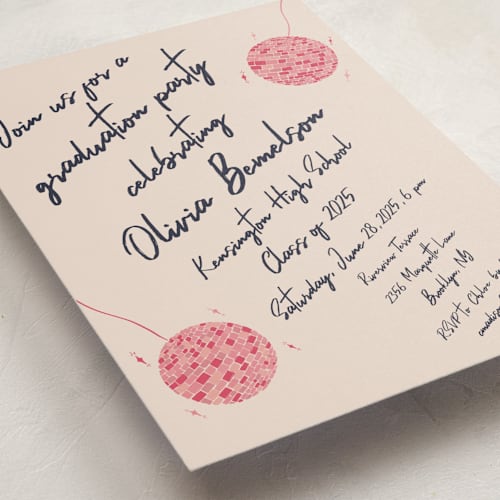 Join us for a
graduation party
celebrating
Olivia Bemelson
Kensington High School
Class of 2025
Saturday, June 28, 2025, 6 pm
Riverview Terrace
2356 Marquette Lane
Brooklyn, NY
RSVP to Chloe